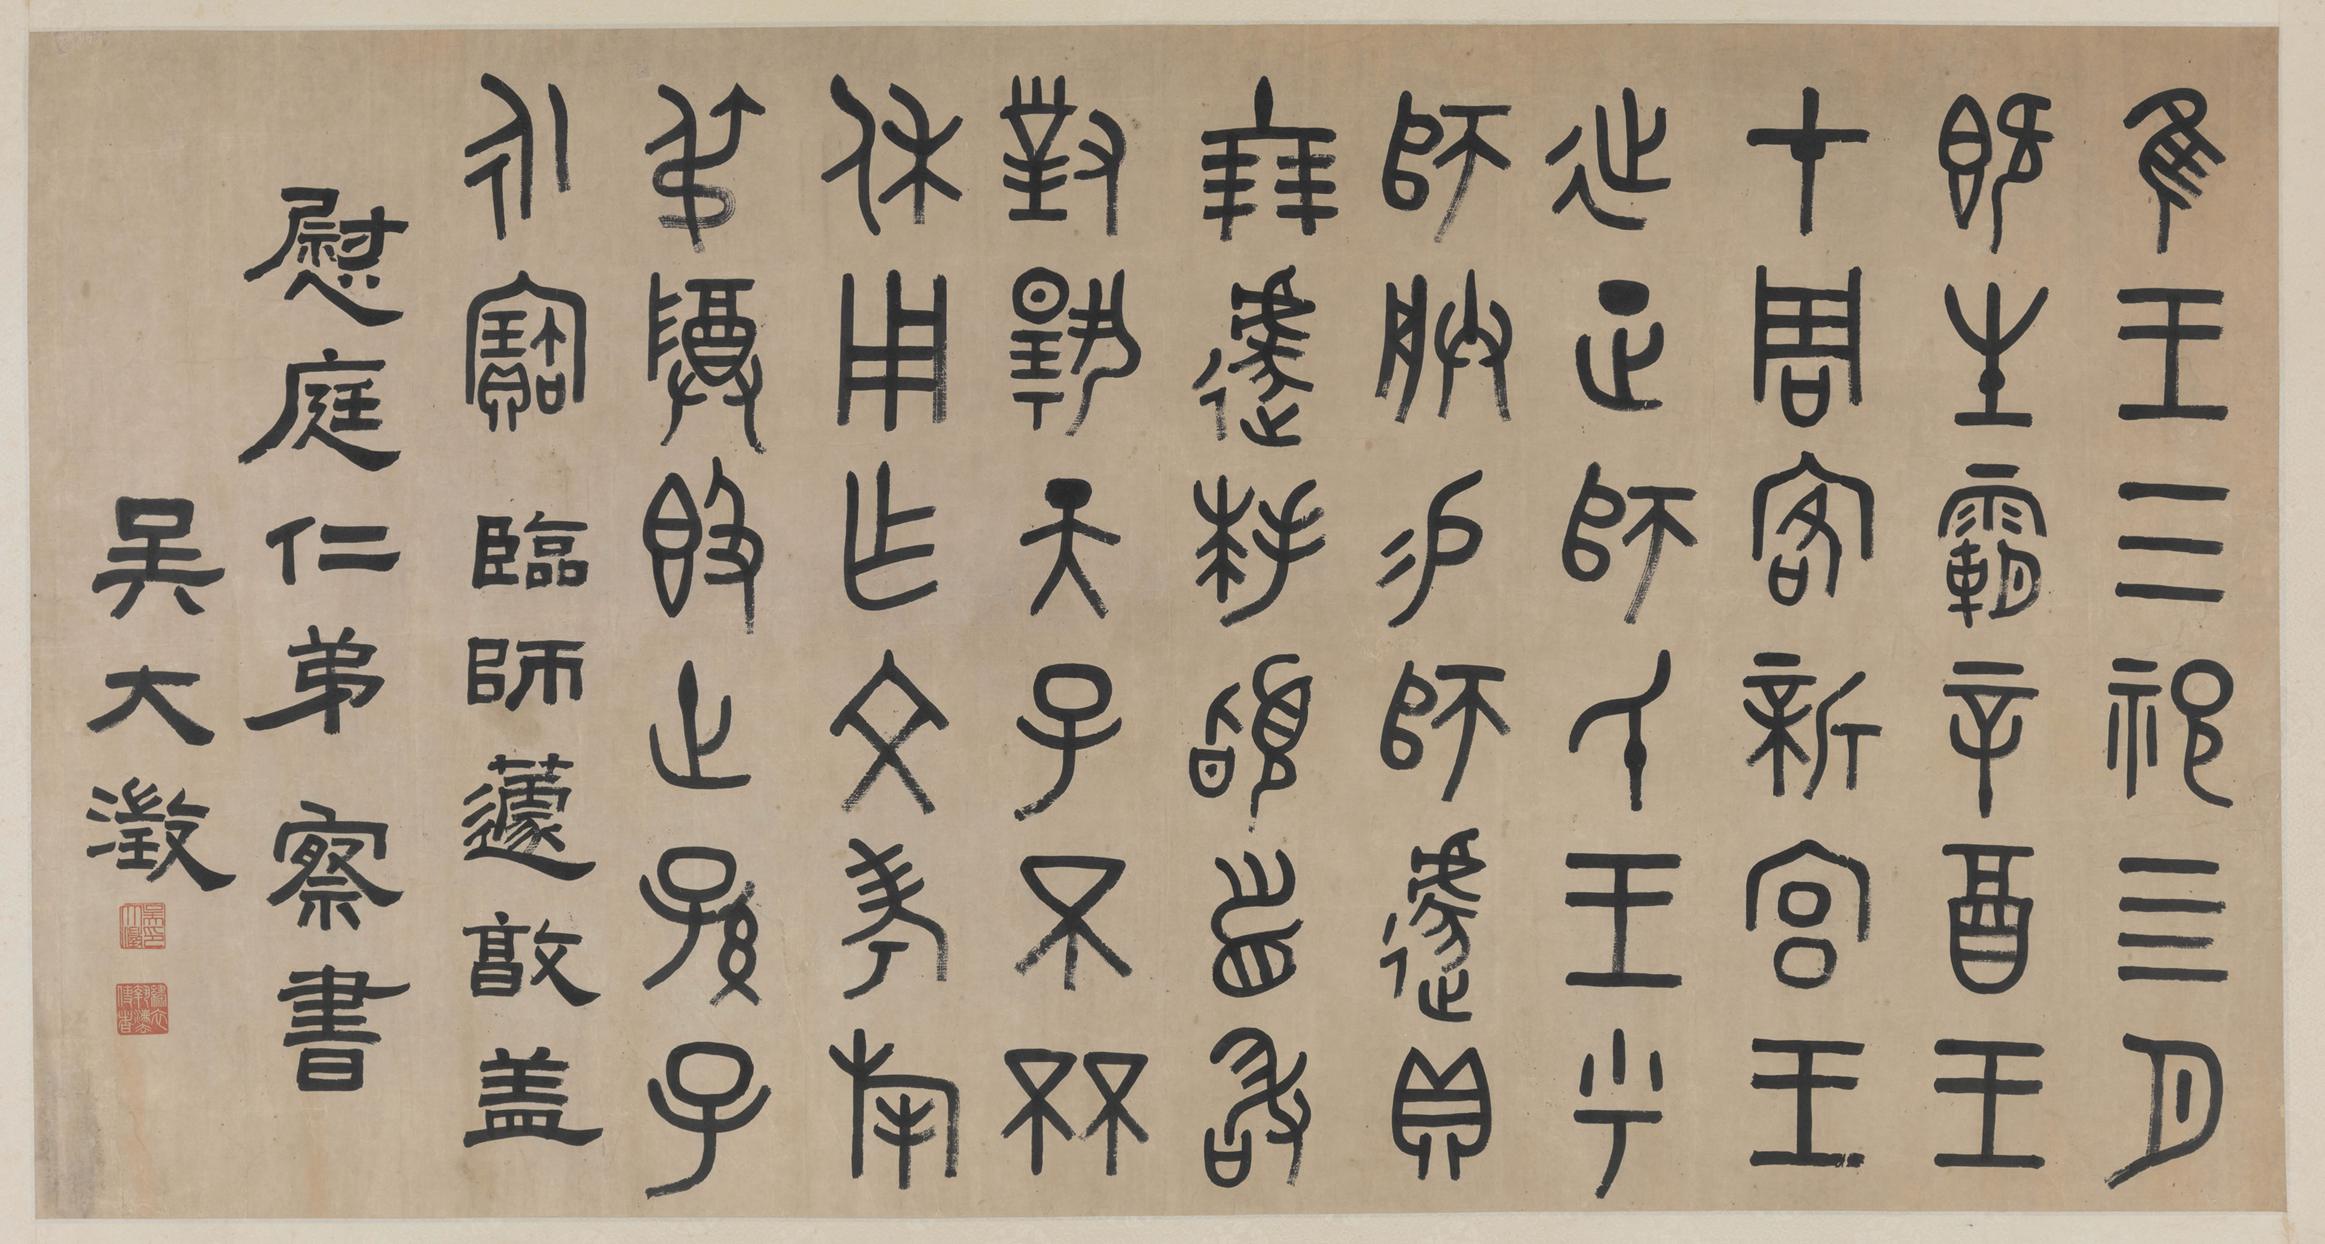 隹王三祀亖月
既生霸辛酉王
才周客新宮王
延正師氏王乎
師朕易師遽貝
十朋遽拜稽首敢
對揚天子不𠀠
休用乍文考旄
叔尊簋世孫子
永寶 臨師遽敦蓋
慰庭仁弟察書
吳大澂
吳印大澂